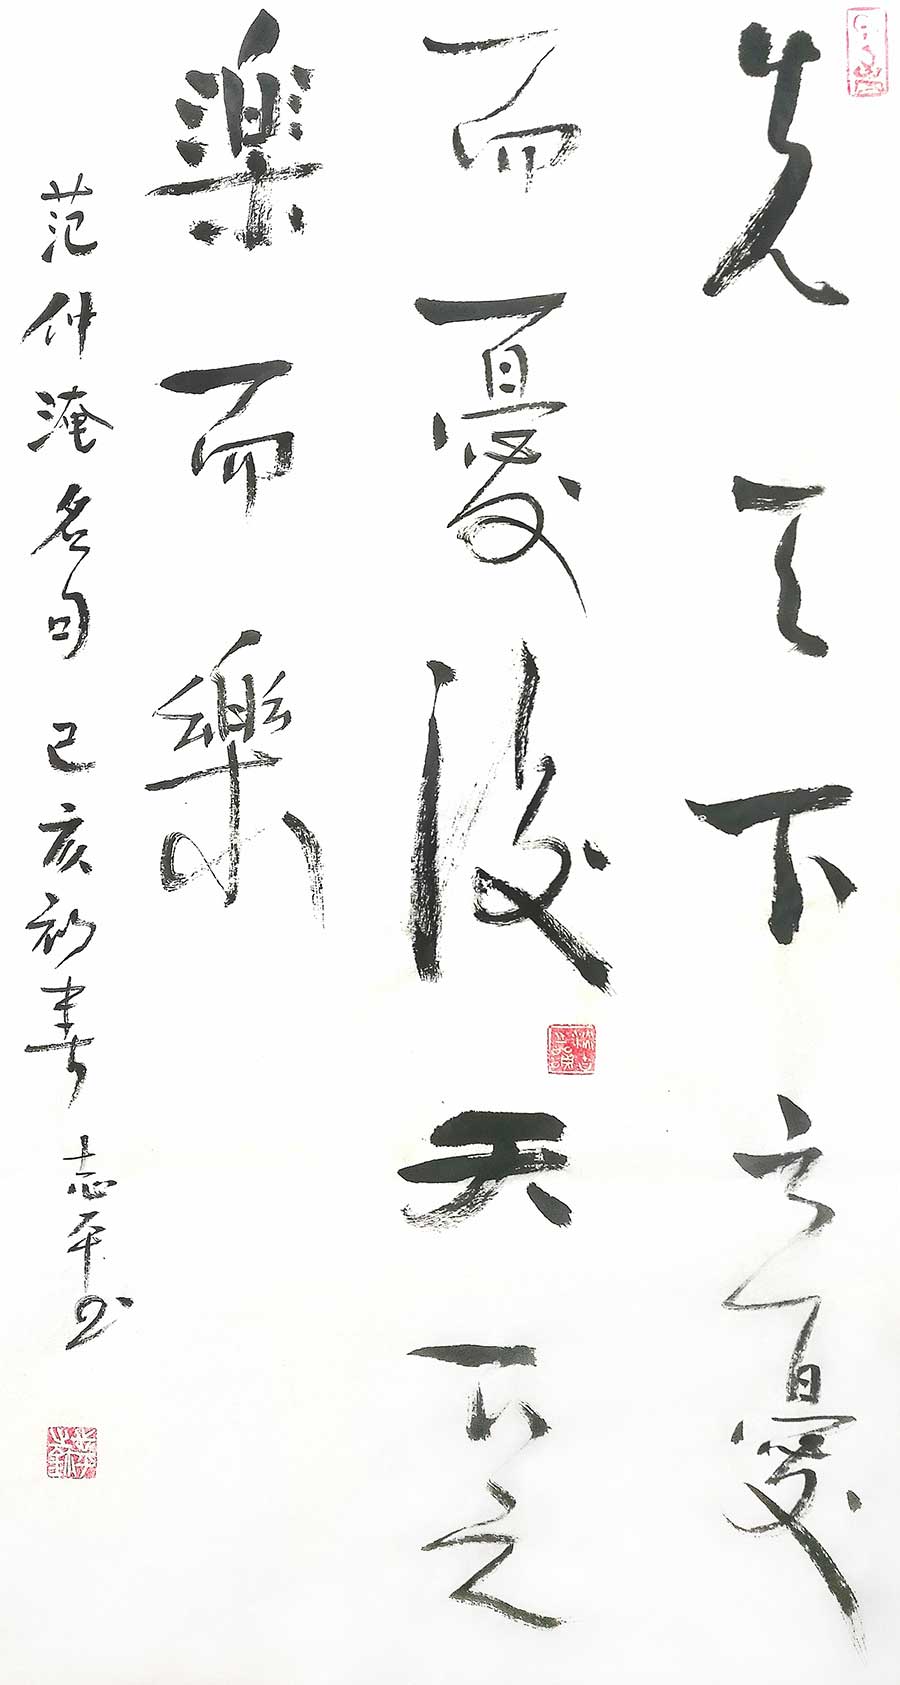 先天下之憂
而憂後天下之
樂而樂
范仲淹名句 己亥初春 志平书